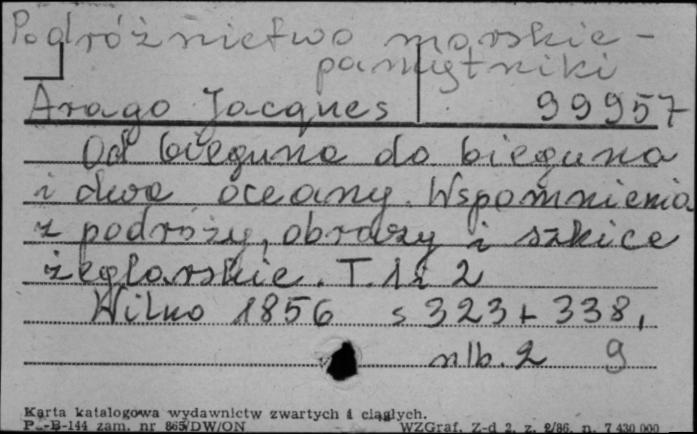 Podróżnictwo morskie -
pamiętniki
Arago Jacques 99957
Od bieguna do bieguna
i dwa oceany. Wspomnienia
z podróży, obrazy i szkice
żeglarskie. T. 1 i 2
Wilno 1856 s 323 + 338,
nlb. 2 9
Karta katalogowa wydawnictw zwartych i ciągłych.
Pu-B-144 zam. nr 865/DW/ON WZGraf. Z-d 2, z. 2/86. n. 7 430 000